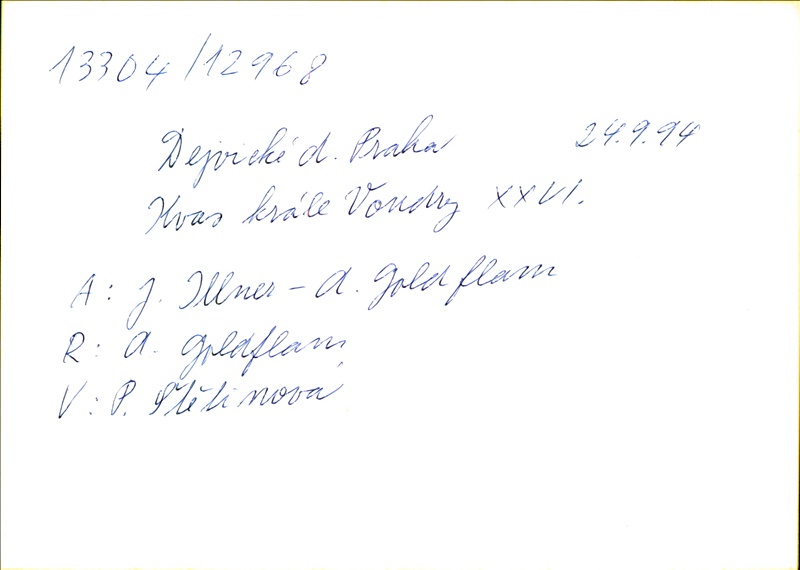 13304/12968
Dejvické d. Praha 24.9.94
Kvas krále Vondry XXVI.
A: J. Illner - A. Goldflam
R: A. Goldflam
V: P. Štětinová